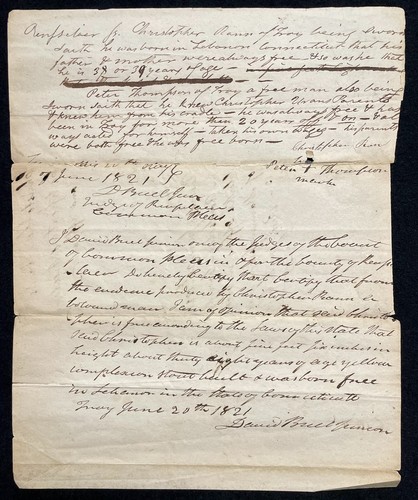 Christopher Rann of Troy being sworn
saith he was born in Lebanon Connecticut that his
father & mother were always free & so was he that
he is 38 or 39 years of age
Peter Thompson of Troy a free man also being
sworn saith that he knew Christopher Rann & Parents
& knew him from his cradle - he was always free & has
been in Troy for more than 20 years - has
always acted for himself - his own wages - his parents
were both free & he was free born -
Christopher Rann
his
Peter + Thompson
mark
20th day of
June 1821
D Buel Jun
Judge of Rensselaer
Common Pleas
I David Buel junior one of the judges of the court
of common pleas in & for the county of Rensse
laer do hereby certify that certify that from
the evidence produced by Christopher Rann a
coloured man I am of opinion that said Christo
pher is free according to the laws of this state that
said Christopher is about five feet six inches in
height about thirty eight years of age yellow
complexion stout built & was born free
in Lebanon in the state of Connecticut
Troy June 20th 1821
David Buel junior